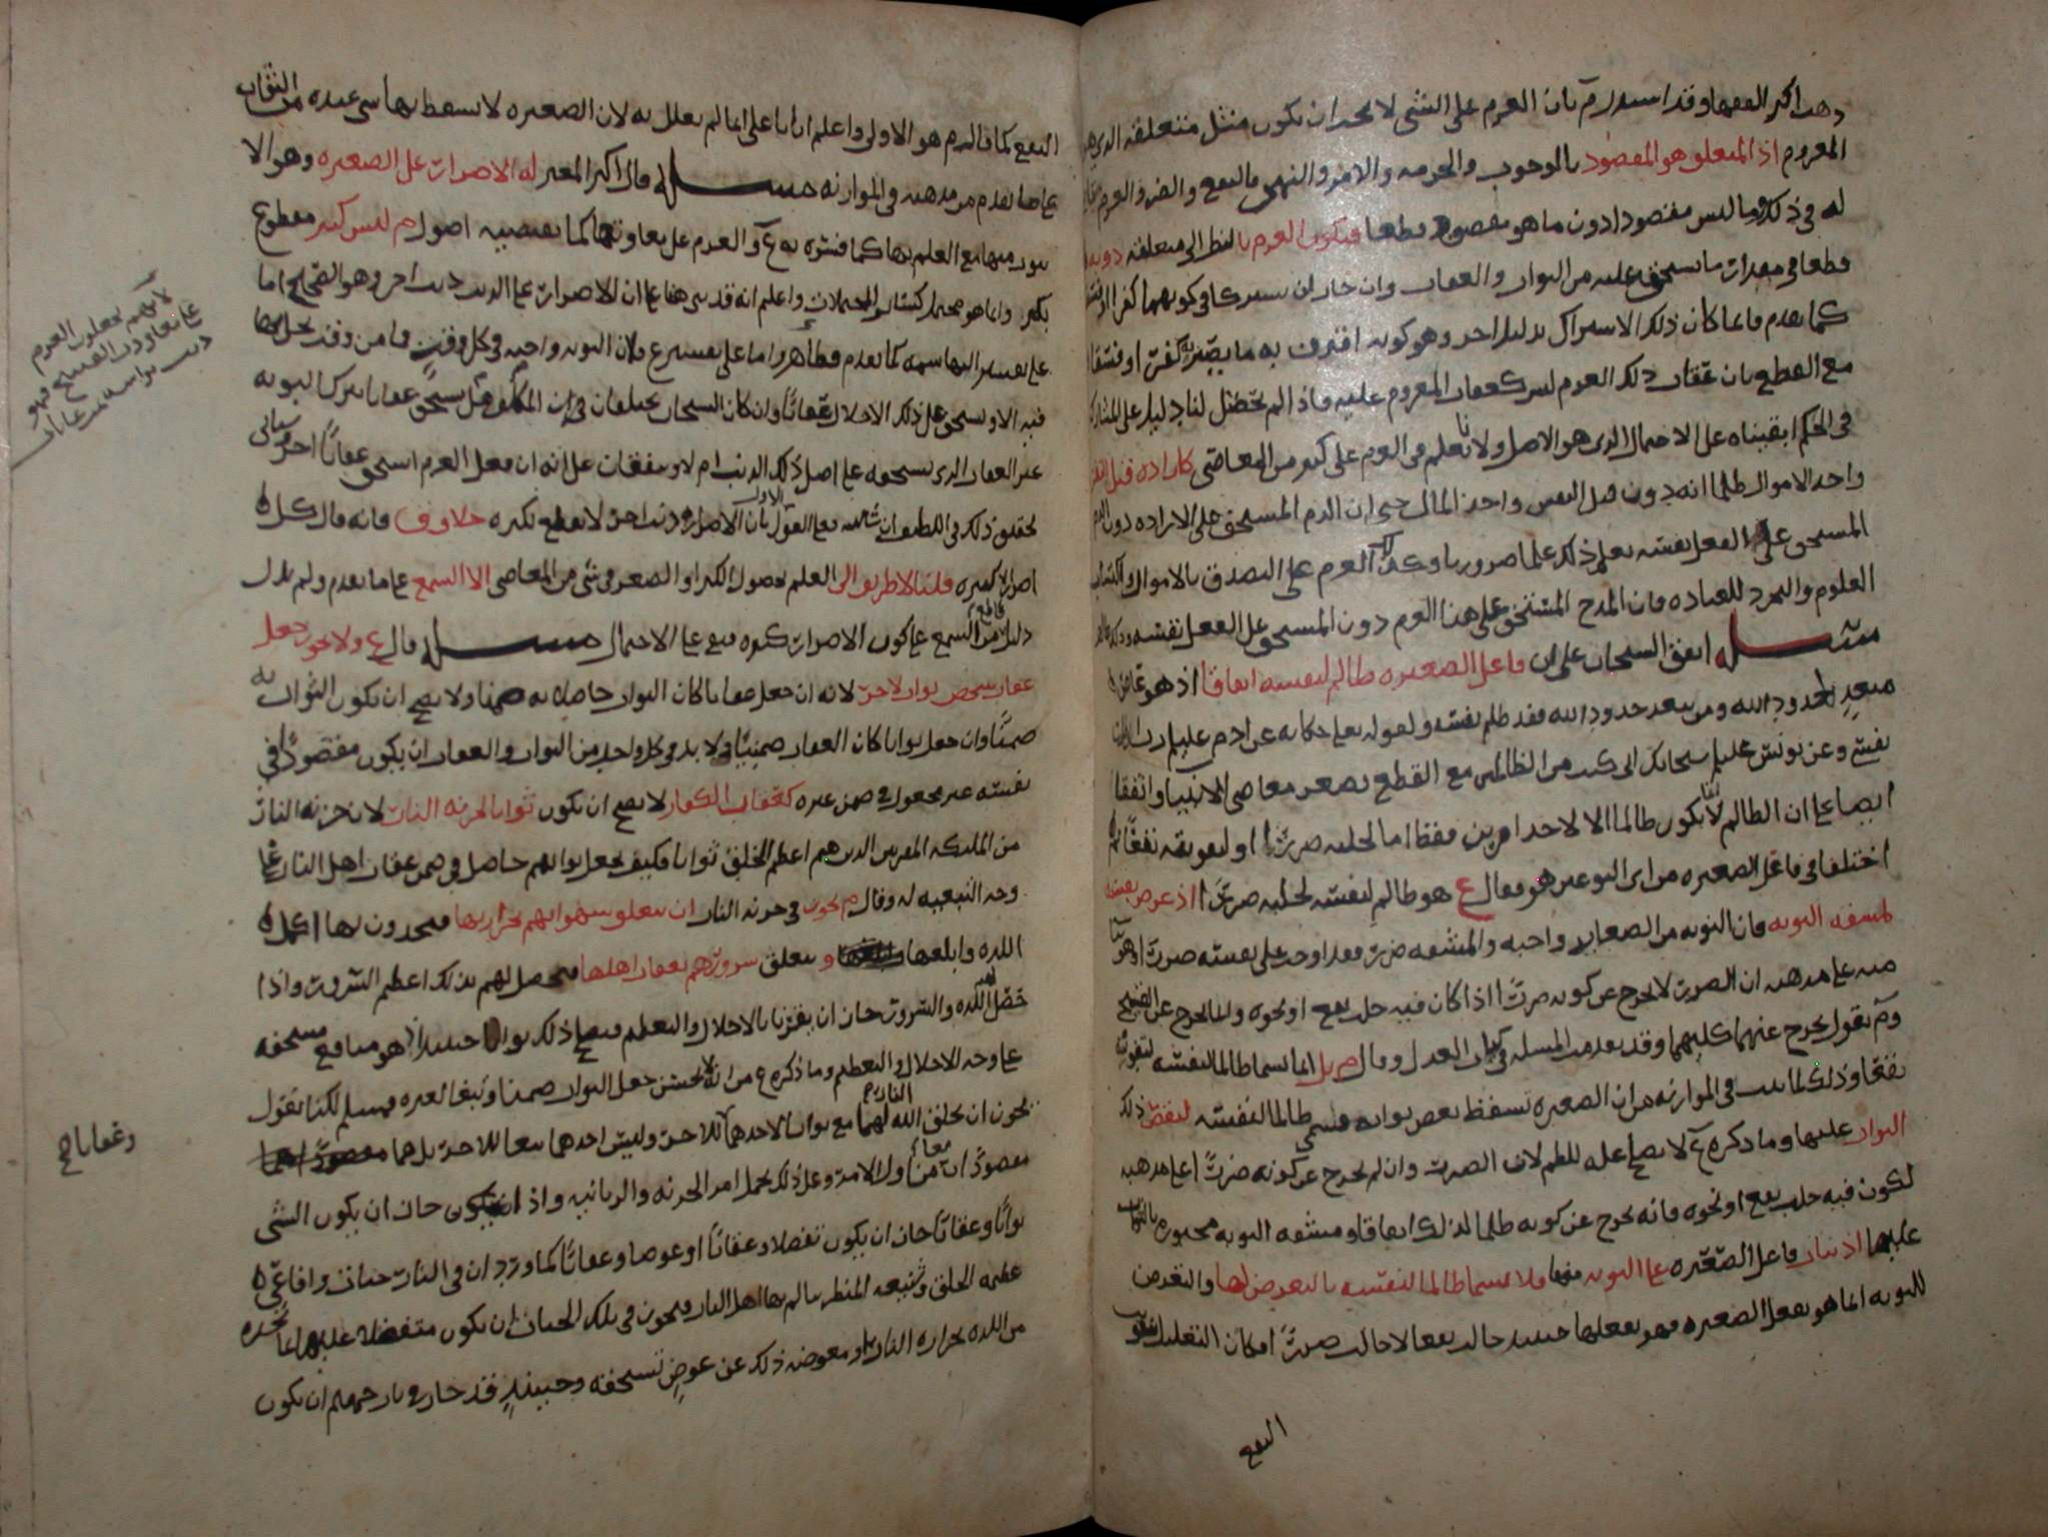 وهذا اكثر الفقها وقد استدل م بان العزم على الشي لا يجب ان يكون مثل متعلقه الذي هو
المعزوم اذ المتعلق هو المقصود بالوجوب والحرمه والامر والنهي والنفع والضر والعزم
له في ذلك وما ليس مقصودا دون ما هو مقصود قطعا فيكون العزم بالنظر الى متعلقه دونه
قطعا في مقدار ما يستحق عليه من الثواب والعقاب وان جاز ان يشتركا في كونهما كفرا او فسقا
كما تقدم فانما كان ذلك الاشتراك بدليل اخر وهو كونه اقترن به ما يصيره كفرا او فسقا
مع القطع بان عقاب ذلك العزم ليس كعقاب المعزوم عليه فاذا لم يحصل لنا دليل على المشاركه
في الحكم ابقيناه على الاحتمال الذي هو الاصل ولانا نعلم في العزم على كثير من المعاصي كاراده قتل النفس
واخذ الاموال ظلما انه دون قتل النفس واخذ المال حتى ان الذم المستحق على الاراده دون الذم
المستحق على الفعل نفسه نعلم ذلك علما ضروريا وكذلك العزم على التصدق بالاموال واكتساب
العلوم والتجرد للعباده فان المدح المستحق على هذا العزم دون المستحق على الفعل نفسه وذلك ظاهر
مسله اتفق الشيخان على ان فاعل الصغيره ظالم لنفسه اتفاقا اذ هو عاص لله
متعد لحدود الله ومن يتعد حدود الله فقد ظلم نفسه ولقوله تعلى حكايه عن ادم عليلم ربنا ظلمنا
نفسي وعن يونس عليلم سبحانك اني كنت من الظالمين مع القطع بصغر معاصي الانبيا واتفقا
ايضا على ان الظالم لا يكون ظالما الا لاحد امرين فقط اما لجلبه ضررا او لتفويته نفعا ثم
اختلفا في فاعل الصغيره من اي النوعين هو فقال ع هو ظالم لنفسه لجلبه ضررا اذ عرض نفسه
لمشقه التوبه فان التوبه من الصغاير واجبه والمشقه ضرر فقد اوجب على نفسه ضررا وهو بنا
منه على مذهبه ان الضرر لا يخرج عن كونه ضررا اذا كان فيه جلب نفع او نحوه وانما يخرج عن القبح
وم يقول يخرج عنهما كليهما وقد تقدمت المسله في كتاب العدل وقال م بل انما يسما ظالما لنفسه لتفويته
نفعا وذلك لما ثبت في الموازنه من ان الصغيره تسقط بعض ثوابه فسمي ظالما لنفسه لنقص ذلك
الثواب عليها وما ذكره ع لا يصلح عله للظلم لان الضرر وان لم يخرج عن كونه ضررا على مذهبه
لكون فيه جلب نفع او نحوه فانه يخرج عن كونه ظلما لذلك اتفاقا ومشقه التوبه مجبوره بالثواب
عليها اذ يثاب فاعل الصغيره على التوبه منها فلا يسما ظالما لنفسه بالتعريض لها والتعريض
للتوبه انما هو بفعل الصغيره فهو بفعلها حينيذ جالب نفعا لا جالب ضررا فكان التعليل بتفويت
النفع
النفع كما قال م هو الاولى واعلم ان ابا علي انما لم يعلل به لان الصغيره لا يسقط بها شي عنده من الثواب
على ما تقدم من مذهبه في الموازنه مسله قال اكثر المعتزله الاصرار على الصغيره وهو الا
يتوب منها مع العلم بها كما فسره به ع او العزم على معاودتها كما يقتضيه اصول م ليس كبير مقطوع
بكبره وانما هو محتمل كساير المحتملات واعلم انه قد بني هنا على ان الاصرار على الذنب ذنب اخر وهو الصحيح اما
على تفسير البهاشمه كما تقدم فظاهر واما على تفسير ع فلان التوبه واجبه في كل وقت فما من وقت يخل بها
فيه الا ويستحق على ذلك الاخلال عقابا وان كان الشيخان يختلفان في ان المكلف هل يستحق عقابا بترك التوبه
غير العقاب الذي يستحقه على اصل ذلك الذنب ام لا ويتفقان على انه ان فعل العزم استحق عقابا اخر وسياتي
تحقيق ذلك في اللطف ان شا الله فعلى القول الاول بان الاصرار ذنب اخر لا يقطع بكبره خلاف ق فانه قال كل
اصرار كبيره قلنا لا طريق الى العلم بحصول الكبر او الصغر في شي من المعاصي الا السمع على ما تقدم ولم يدل
دليل قاطع من السمع على كون الاصرار كبيره فبقي على الاحتمال مسله قال ع ولا يجوز جعل
عقاب شخص ثواب لاخر لانه ان جعل عقابا كان الثواب حاصلا به ضمنا ولا يصح ان يكون الثواب به
ضمنا وان جعل ثوابا كان العقاب ضمنيا ولا بد في كل واحد من الثواب والعقاب ان يكون مقصودا في
نفسه غير مجعول في ضمن غيره كعقاب الكفار لا يصح ان يكون ثوابا لخزنه النار لان خزنه النار
من المليكه المقربين الذين هم اعظم الخلق ثوابا فكيف يجعل ثوابهم حاصل في ضمن عقاب اهل النار على
وجه التبعيه له وقال م يجوز في خزنه النار ان يتعلق شهواتهم بحرارتها فيجدون بها اكمل
اللذه وابلغها ويتعلق سرورهم بعقاب اهلها فيحصل لهم بذلك اعظم السرور واذا
حصل لهم اللذه والسرور جاز ان يقترنا بالاجلال والتعظيم فيصح ذلك ثوابا حينيذ اذ هو منافع مستحقه
على وجه الاجلال والتعظيم وما ذكره ع من انه لا يحسن جعل الثواب ضمنا وتبعا لغيره فمسلم لكنا نقول
يجوز ان يخلق الله النار لهما مع ثوابا لاحدهما وعقابا للاخر وليس احدهما تبعا للاخر بل هما
مقصودان معا من اول الامر وعلى ذلك يحمل امر الخزنه والزبانيه واذا جاز ان يكون الشي
ثوابا وعقابا جاز ان يكون تفضلا وعقابا او عوضا وعقابا كما ورد ان في النار حيات وافاعي
عظيمه الخلق وشنيعه المنظر يتالم بها اهل النار فيجوز في تلك الحيات ان يكون متفضلا عليها بما تجده
من اللذه بحراره النار او معوضه ذلك عن عوض تستحقه وحينيذ قد جاز في نار جهنم ان يكون
لانهم يجعلون العزم
على معاودة القبيح فهو
ذنب
وعقابا صح